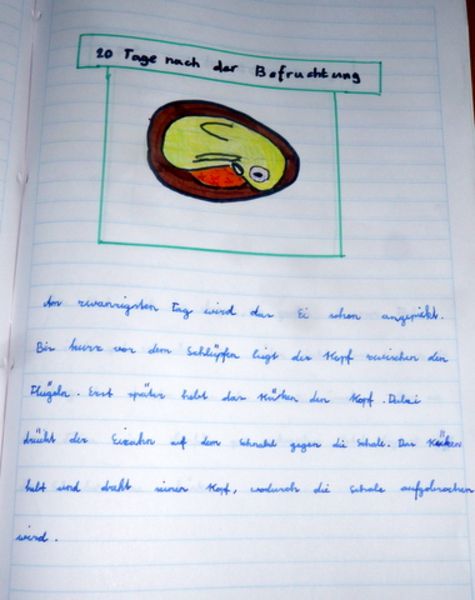 20 Tage nach der Befruchtung
Am zwanzigsten Tag wird das Ei schon angepickt.
Bis kurz vor dem Schlüpfen liegt der Kopf zwischen den
Flügeln. Erst später hebt das Küken den Kopf. Dabei
drückt der Eizahn auf dem Schnabel gegen die Schale. Das Küken
hebt und dreht seinen Kopf, wodurch die Schale aufgebrochen
wird.